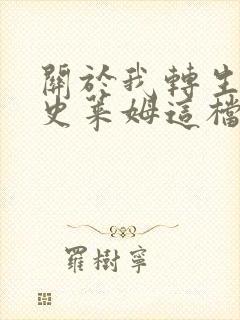 關於我轉生
史萊姆這檔
羅樹寧